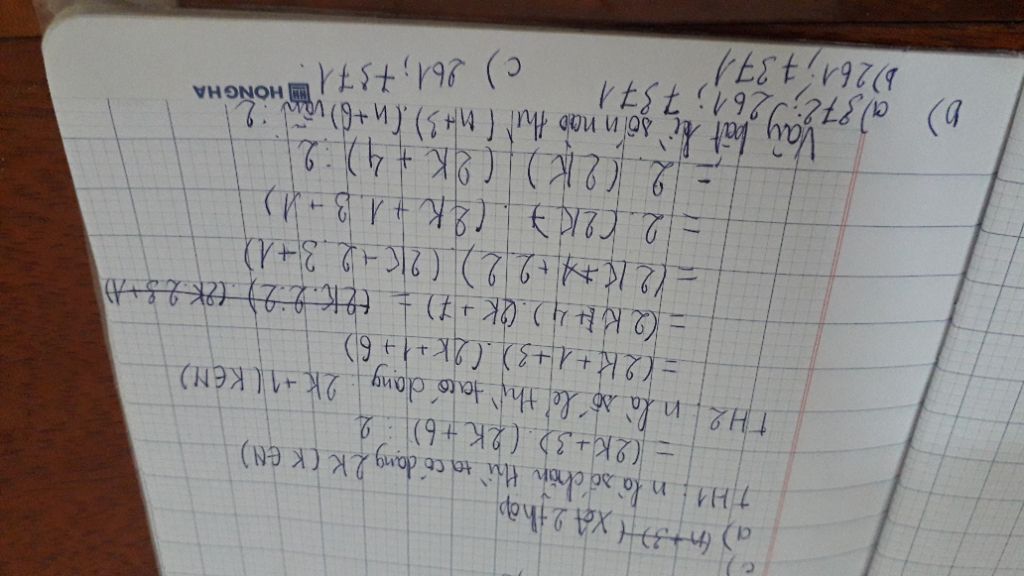 c)
a) (n+3) ( Xét 2 t/hợp
TH1: n là số chẵn thì ta có dạng 2k (K∈N)
= (2k+3).(2k+6) ⋮ 2
TH2: n là số lẻ thì ta có dạng : 2k+1 (K∈N)
= (2k+1+3).(2k+1+6)
= (2k+4).(2k+7) = (2k.2.2).(2k.2.3+1)
= (2k+2.2) (2k+2.3+1)
= 2.(2k) . (2k+1.3+1)
= 2.(2k) (2k+4) ⋮ 2
Vậy bất kì số n nào thì (n+3).(n+6) vẫn ⋮ 2
b)
a) 372; 261; 7371
b) 261; 7371
c) 261; 7371.
HONG HA